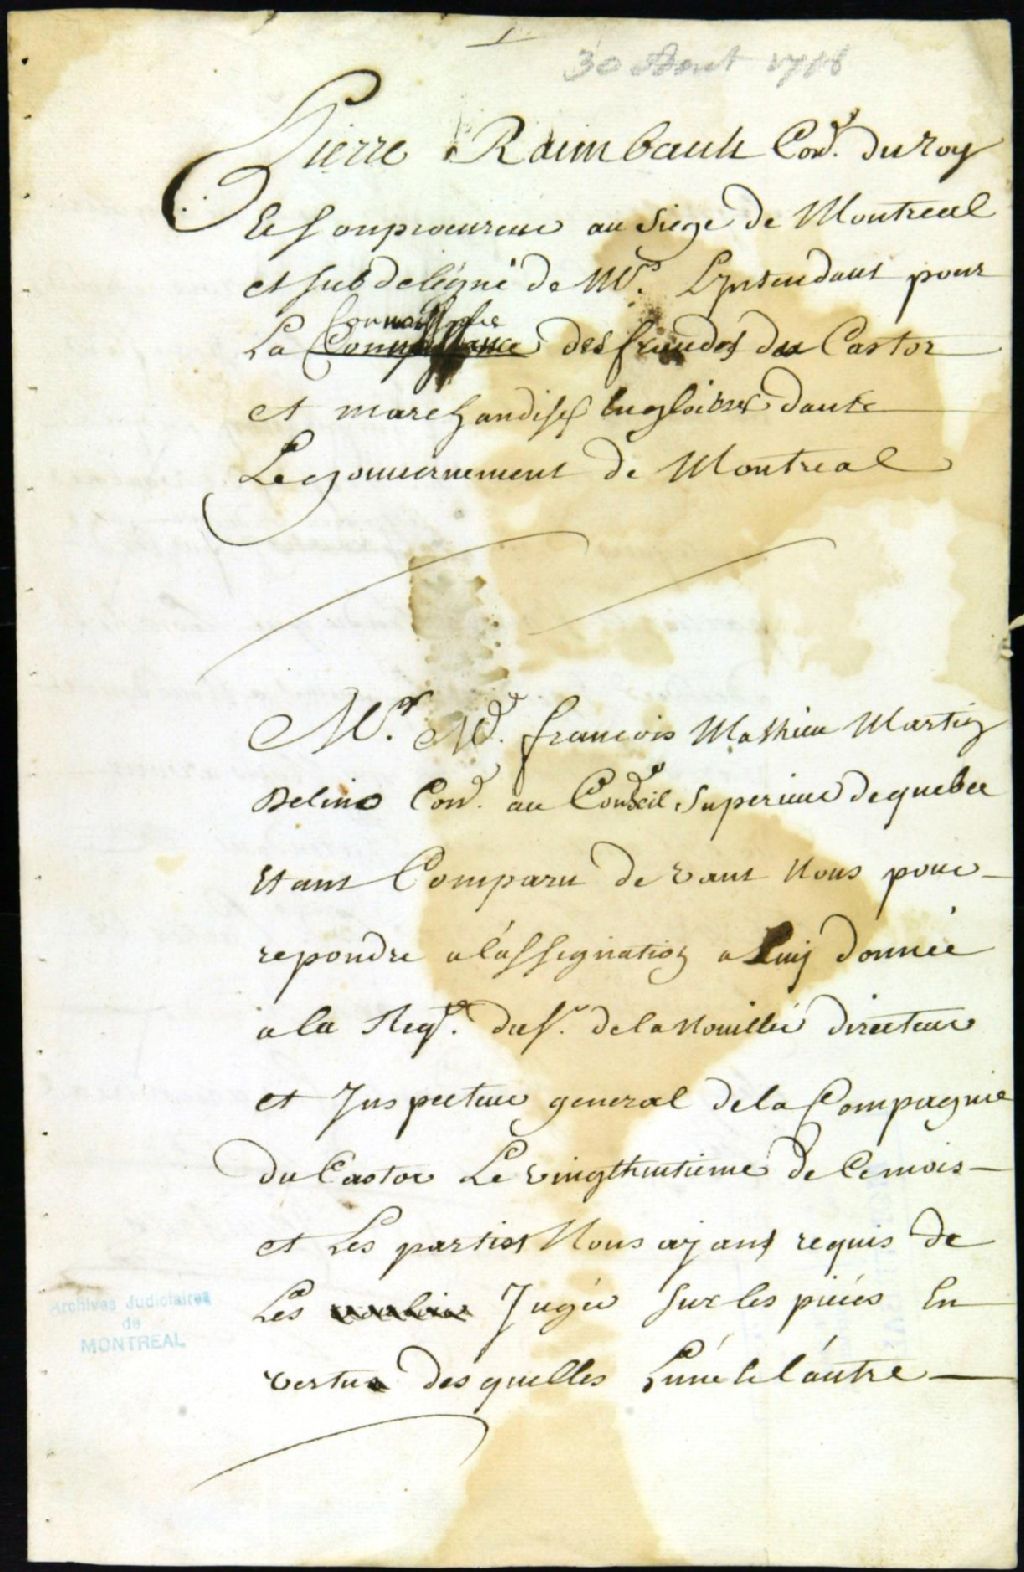 30 Aout 1718
Pierre Raimbault Conr. du Roy
Et son procureur au siege de Montreal
et subdelégué de Mr. L'Intendant pour
connoissance
La des fraudes du Castor
et marchandises angloises dans
Le gouvernement de Montreal
Mr. Me. francois Mathieu Martin
Delino Conr. au Conseil Superieur de quebec
Etant Comparu devant Nous pour
repondre a l'assignation a luy donnée
a la Reqte. du sr. de la Nouillée directeur
et Inspecteur general de la Compagnie
du Castor Le vingthuitieme de Ce mois
et Les parties Nous ayant requis de
Les Juger sur les pieces En
vertu des quelles L'une et l'autre
Archives Judiciaires
de
MONTREAL